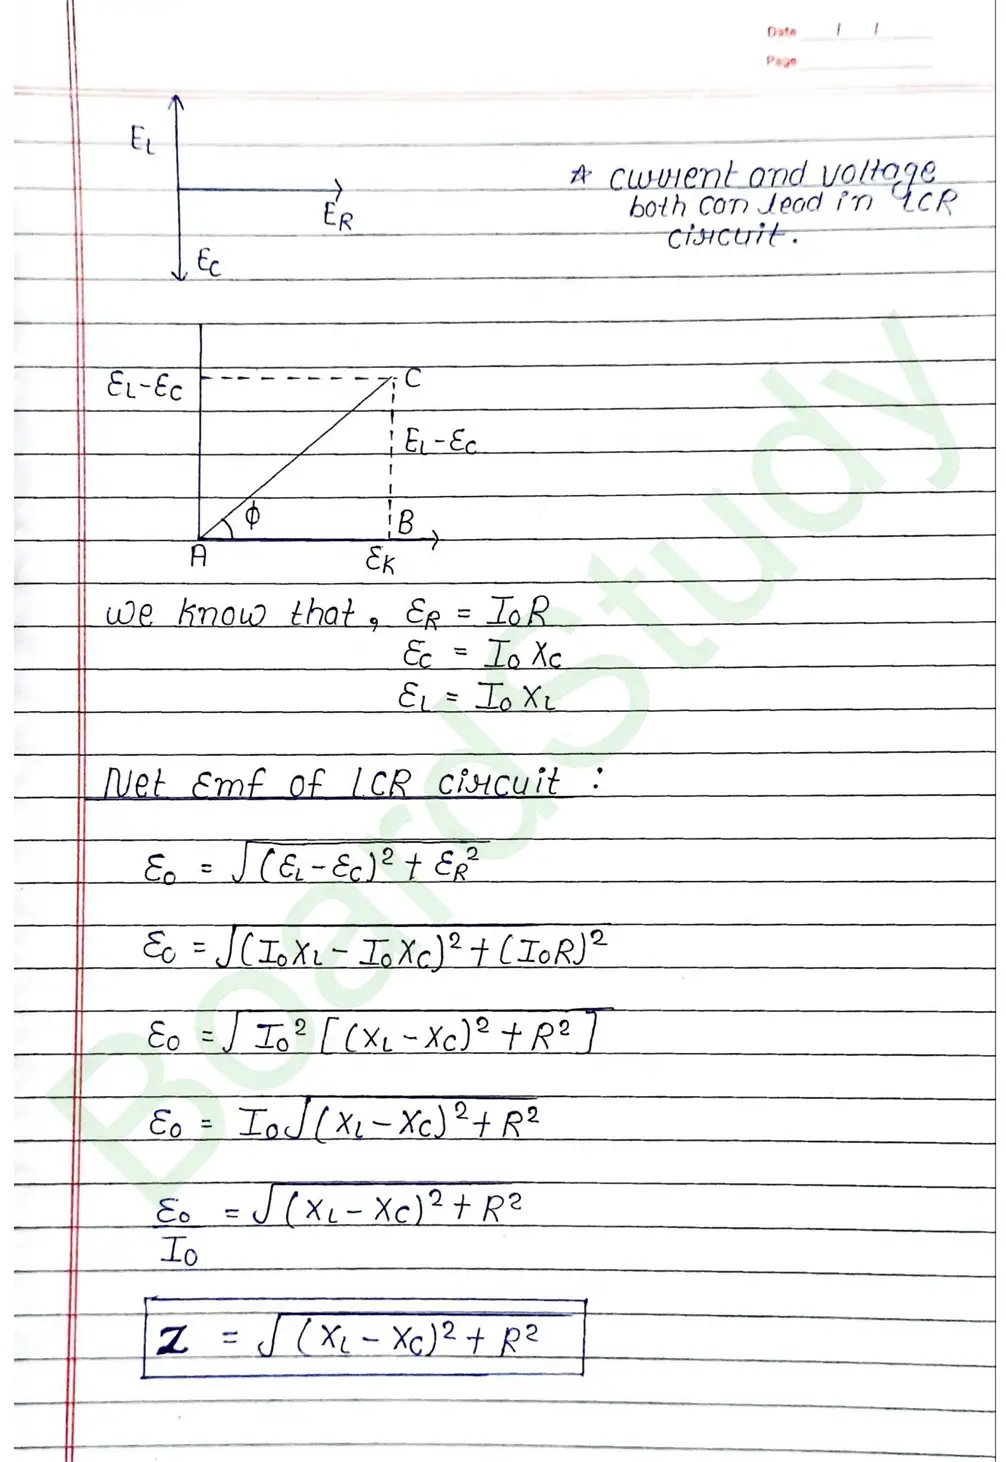 Date / /
Page
E_L
E_R
E_C
☆ current and voltage
both can lead in LCR
circuit.
Ɛ_L-Ɛ_C
C
E_L-Ɛ_C
ϕ
B
A
Ɛ_K
we know that, Ɛ_R = I_0R
Ɛ_C = I_0 X_C
Ɛ_L = I_0 X_L
Net Emf of LCR circuit :
Ɛ_0 = √(Ɛ_L-Ɛ_C)² + Ɛ_R²
Ɛ_0 = √(I_0X_L - I_0X_C)² + (I_0R)²
Ɛ_0 = √I_0² [(X_L - X_C)² + R²]
Ɛ_0 = I_0√(X_L - X_C)² + R²
Ɛ_0/I_0 = √(X_L - X_C)² + R²
Z = √(X_L - X_C)² + R²
BoardStudy